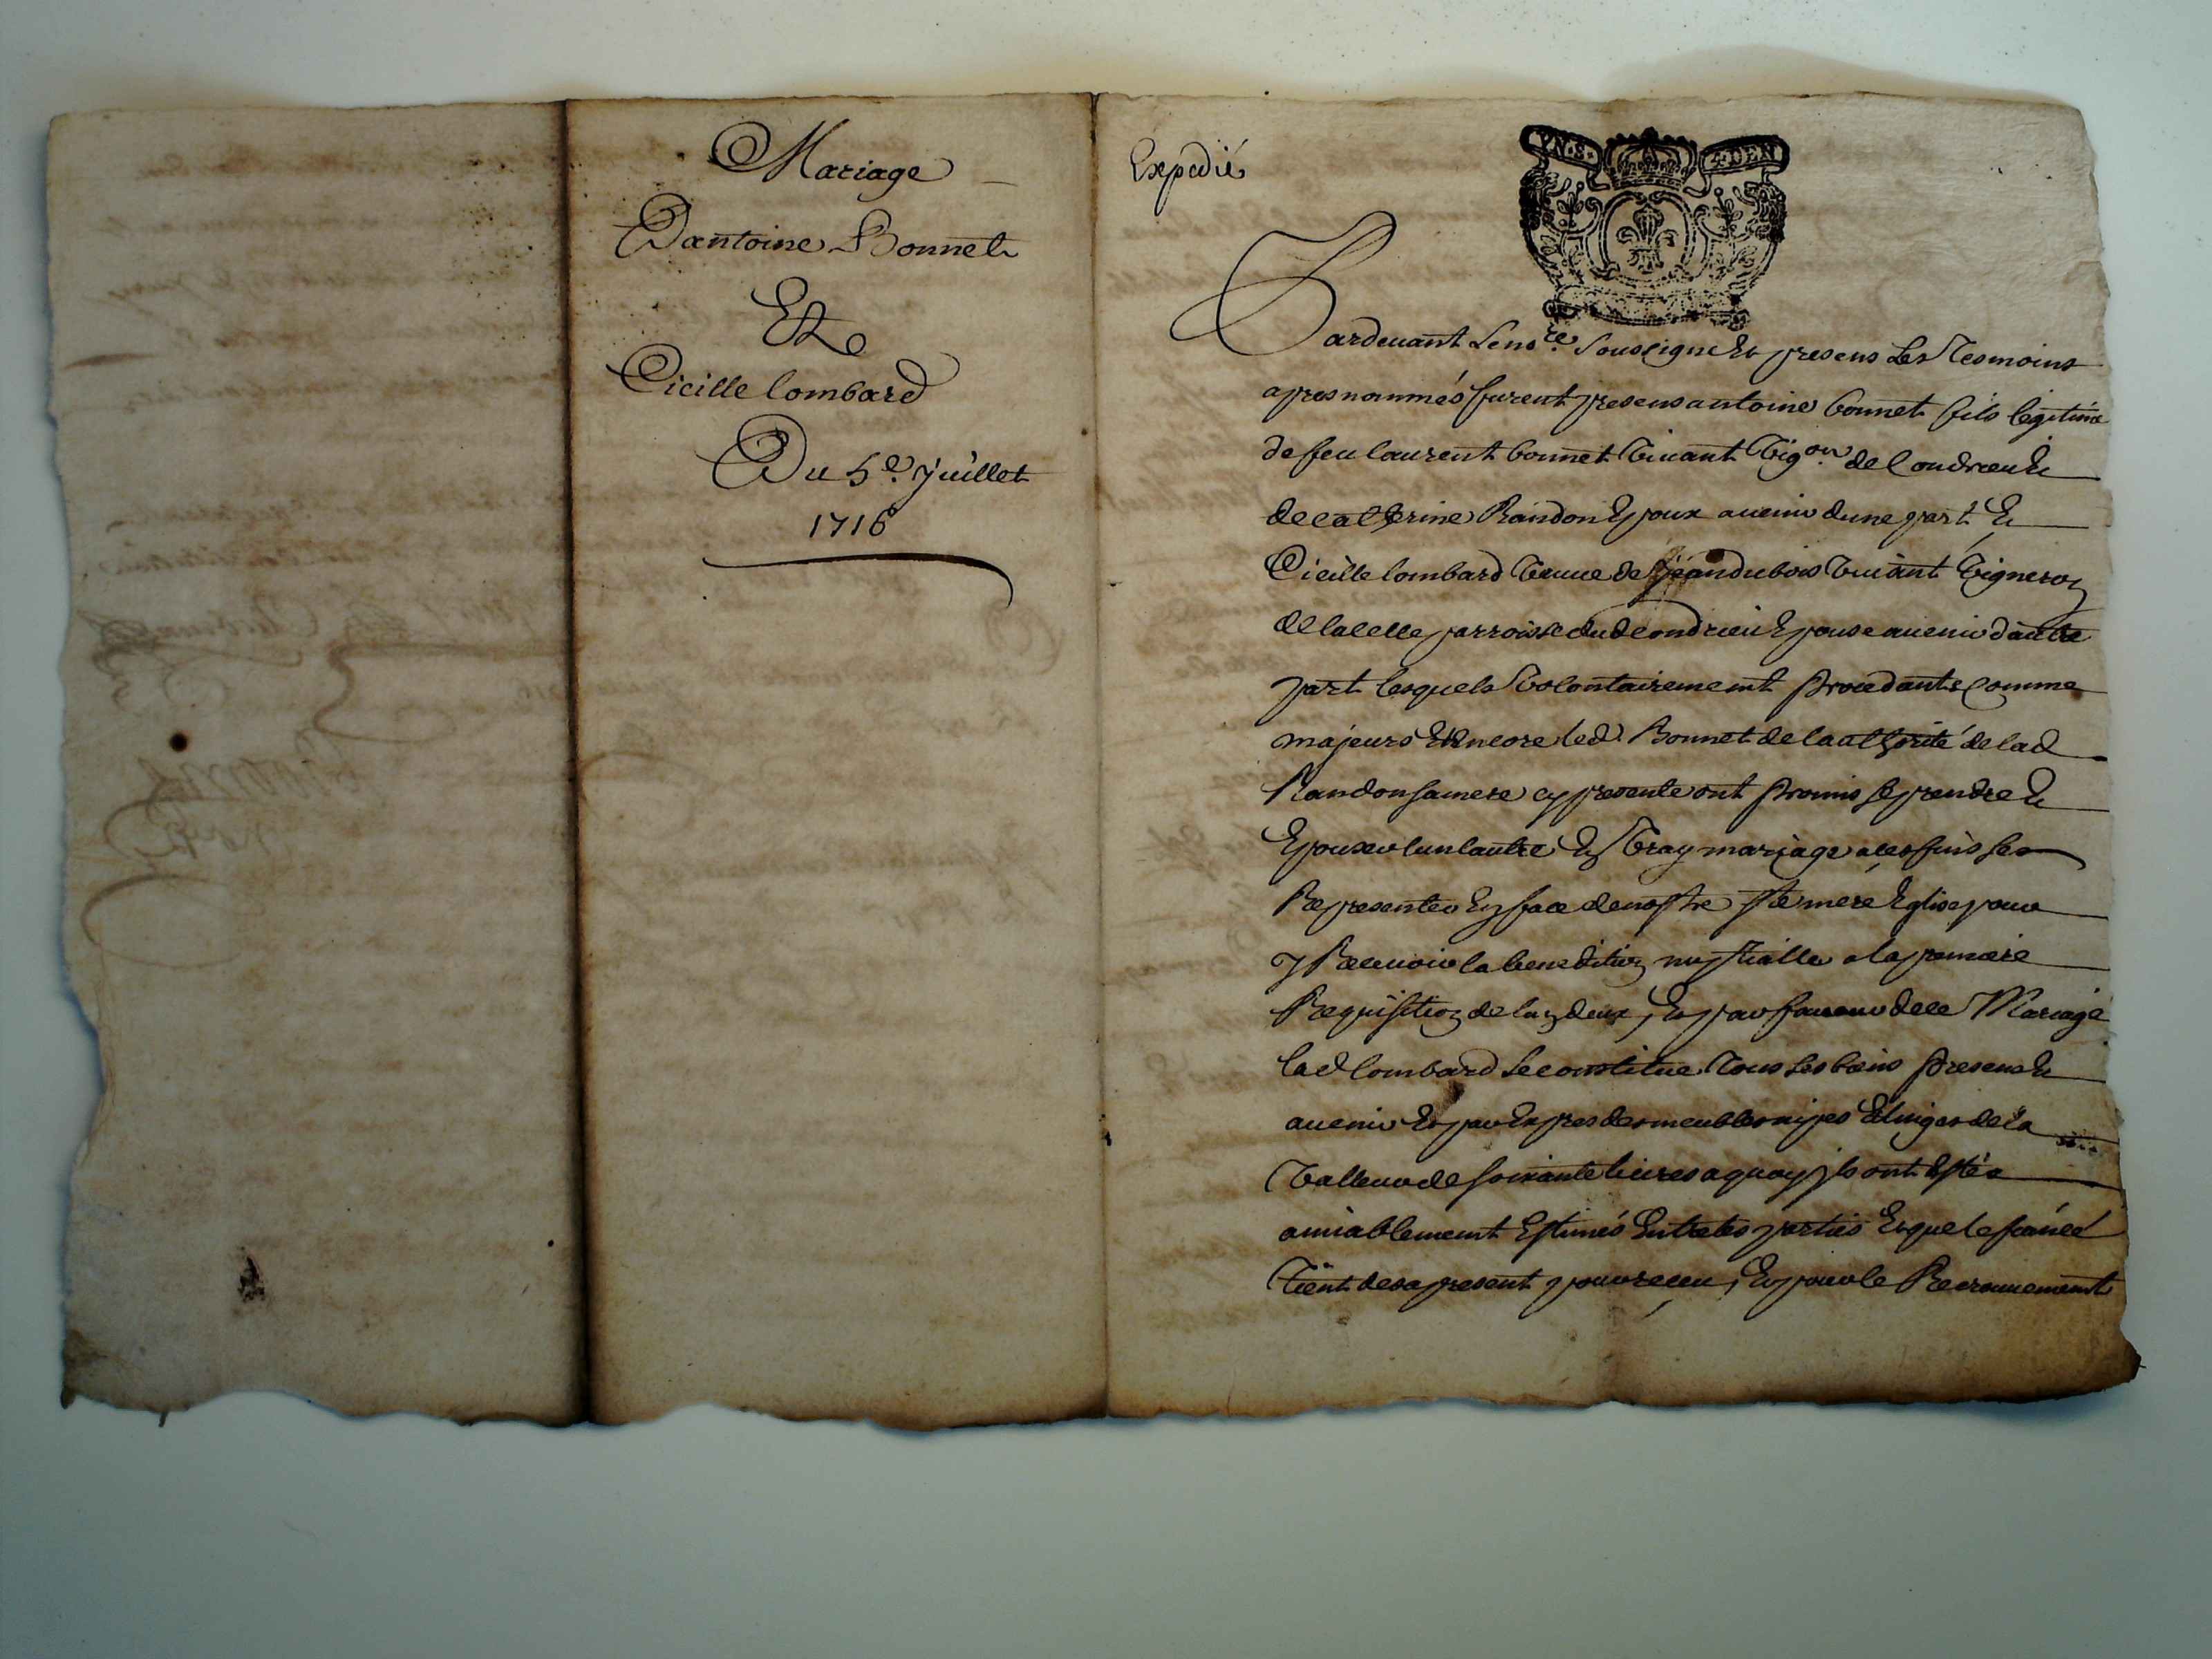 Mariage
Dantoine Bonnet
Et
Cicille lombard
Du 5e. Juillet
1716
Expedié
VN.S. 4.DEN
Pardevant Le nore. Soussigne Et presens Les Tesmoins
apres nommés furent presens antoine bonnet fils legitime
de feu laurent bonnet Vivant Vigon. de Condrieu Et
de catherine Randon Epoux avenir dune part Et
Cicille lombard Veuve de Jean dubois Vivant Vigneron
de lacelle parroisse dud condrieu Epouse avenir dautre
part lesquels Volontairement procedants Comme
majeurs Et Encore led. Bonnet de lauthorité de lad
Randon sa mere cy presente ont promis se prendre Et
Epouser lun lautre En Vray mariage a ces fins se
Representer En face de nostre ste mere Eglise pour
y Recevoir la benediction nuptialle a la premiere
Requisition de lun deux, Et par faveur de ce Mariage
lad lombard se constitue Tous ses biens presens Et
avenir Et par Expres des meubles nipes Et linges de la
Valleur de soixante livres a quoy ils ont Estés
amiablement Estimés Entre les parties Et que le fiancé
Tient des a present pour receu, Et pour le